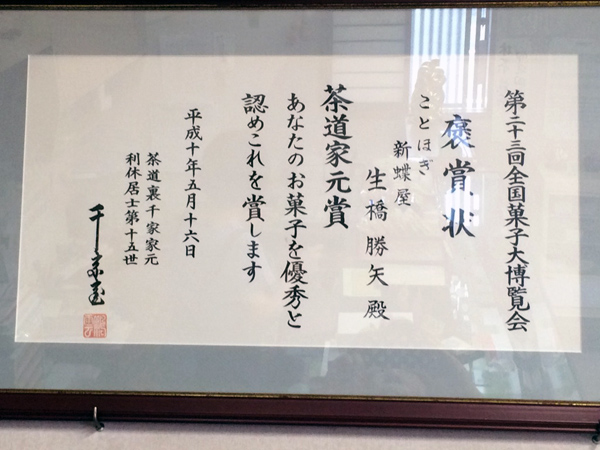 第二十三回全国菓子大博覧会
褒賞状
ことほぎ
新蝶屋
生橋勝矢殿
茶道家元賞
あなたのお菓子を優秀と
認めこれを賞します
平成十年五月十六日
茶道裏千家家元
利休居士第十五世
千宗室